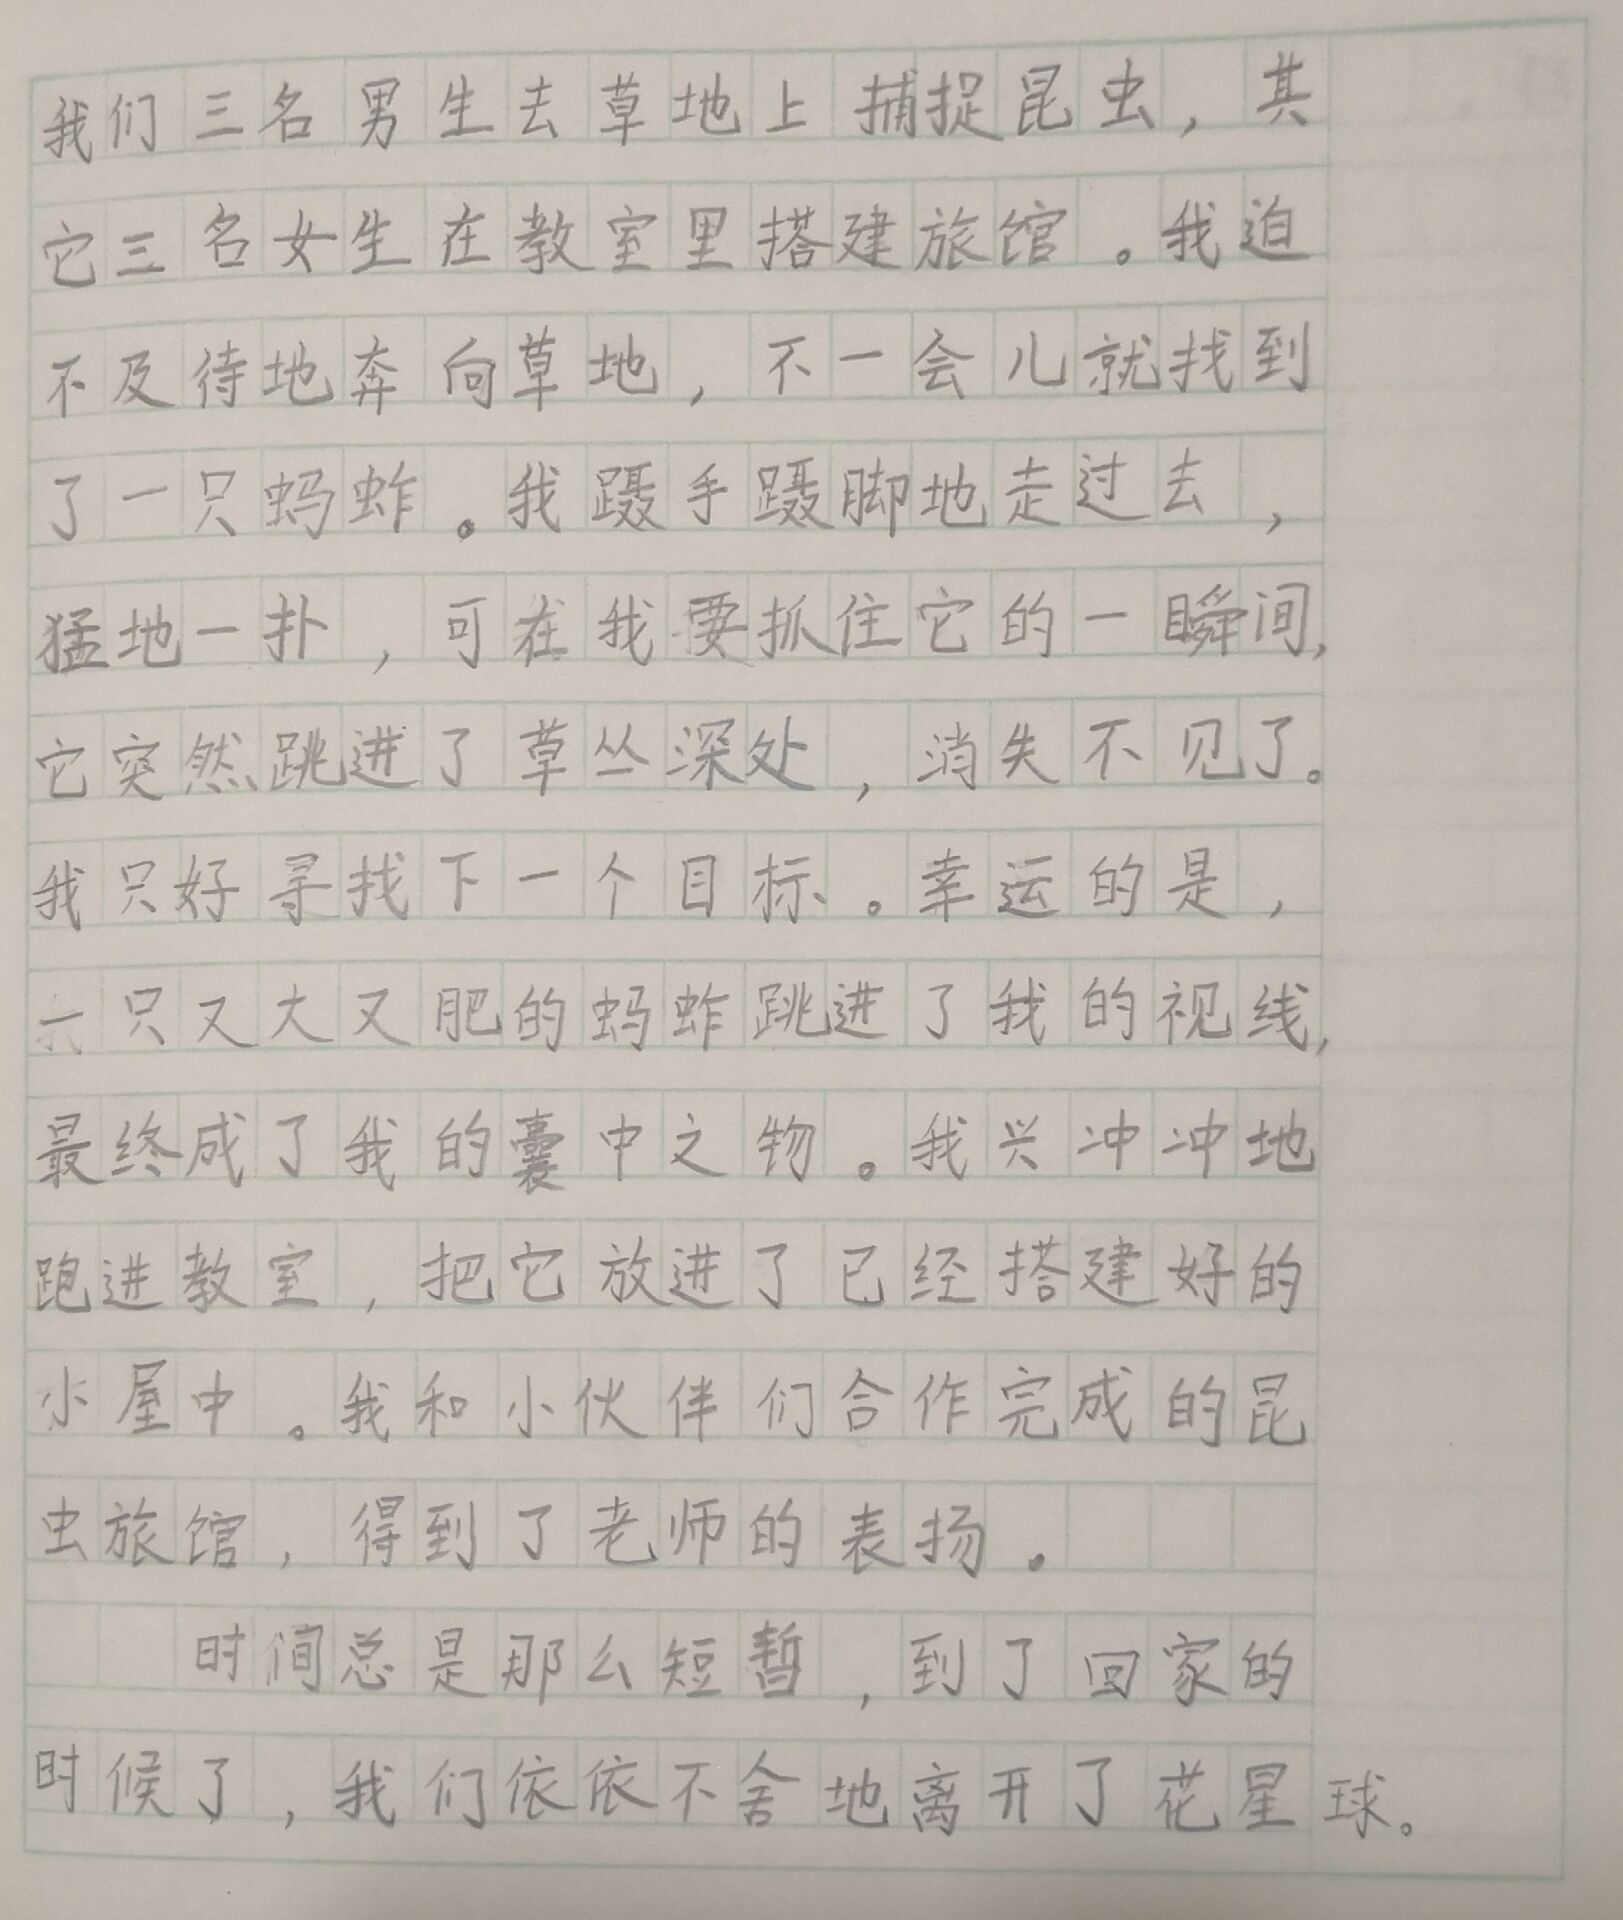 我们三名男生去草地上捕捉昆虫，其
它三名女生在教室里搭建旅馆。我迫
不及待地奔向草地，不一会儿就找到
了一只蚂蚱。我蹑手蹑脚地走过去，
猛地一扑，可在我要抓住它的一瞬间，
它突然跳进了草丛深处，消失不见了。
我只好寻找下一个目标。幸运的是，
一只又大又肥的蚂蚱跳进了我的视线，
最终成了我的囊中之物。我兴冲冲地
跑进教室，把它放进了已经搭建好的
小屋中。我和小伙伴们合作完成的昆
虫旅馆，得到了老师的表扬。
时间总是那么短暂，到了回家的
时候了，我们依依不舍地离开了花星球。